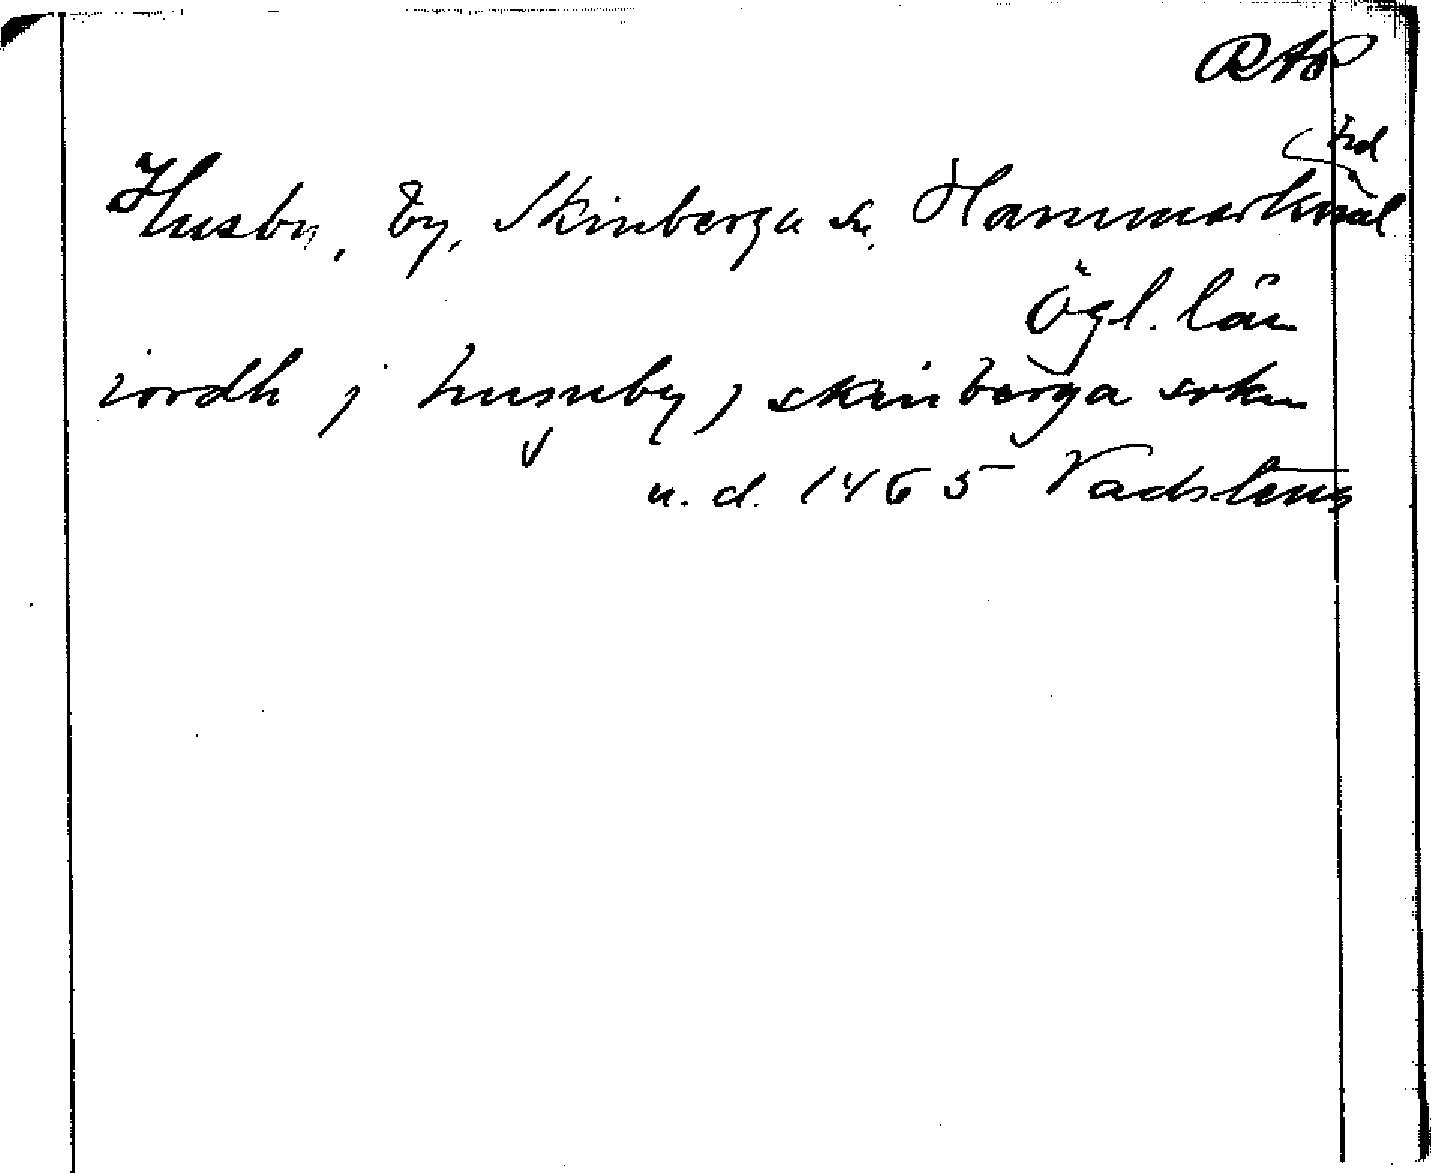 RAP
hd
Husby, by, Skinberga sn, Hammarkind
Ögl. län
iordh j husseby j skinberga sokn
u. d. 1465 Vadstena